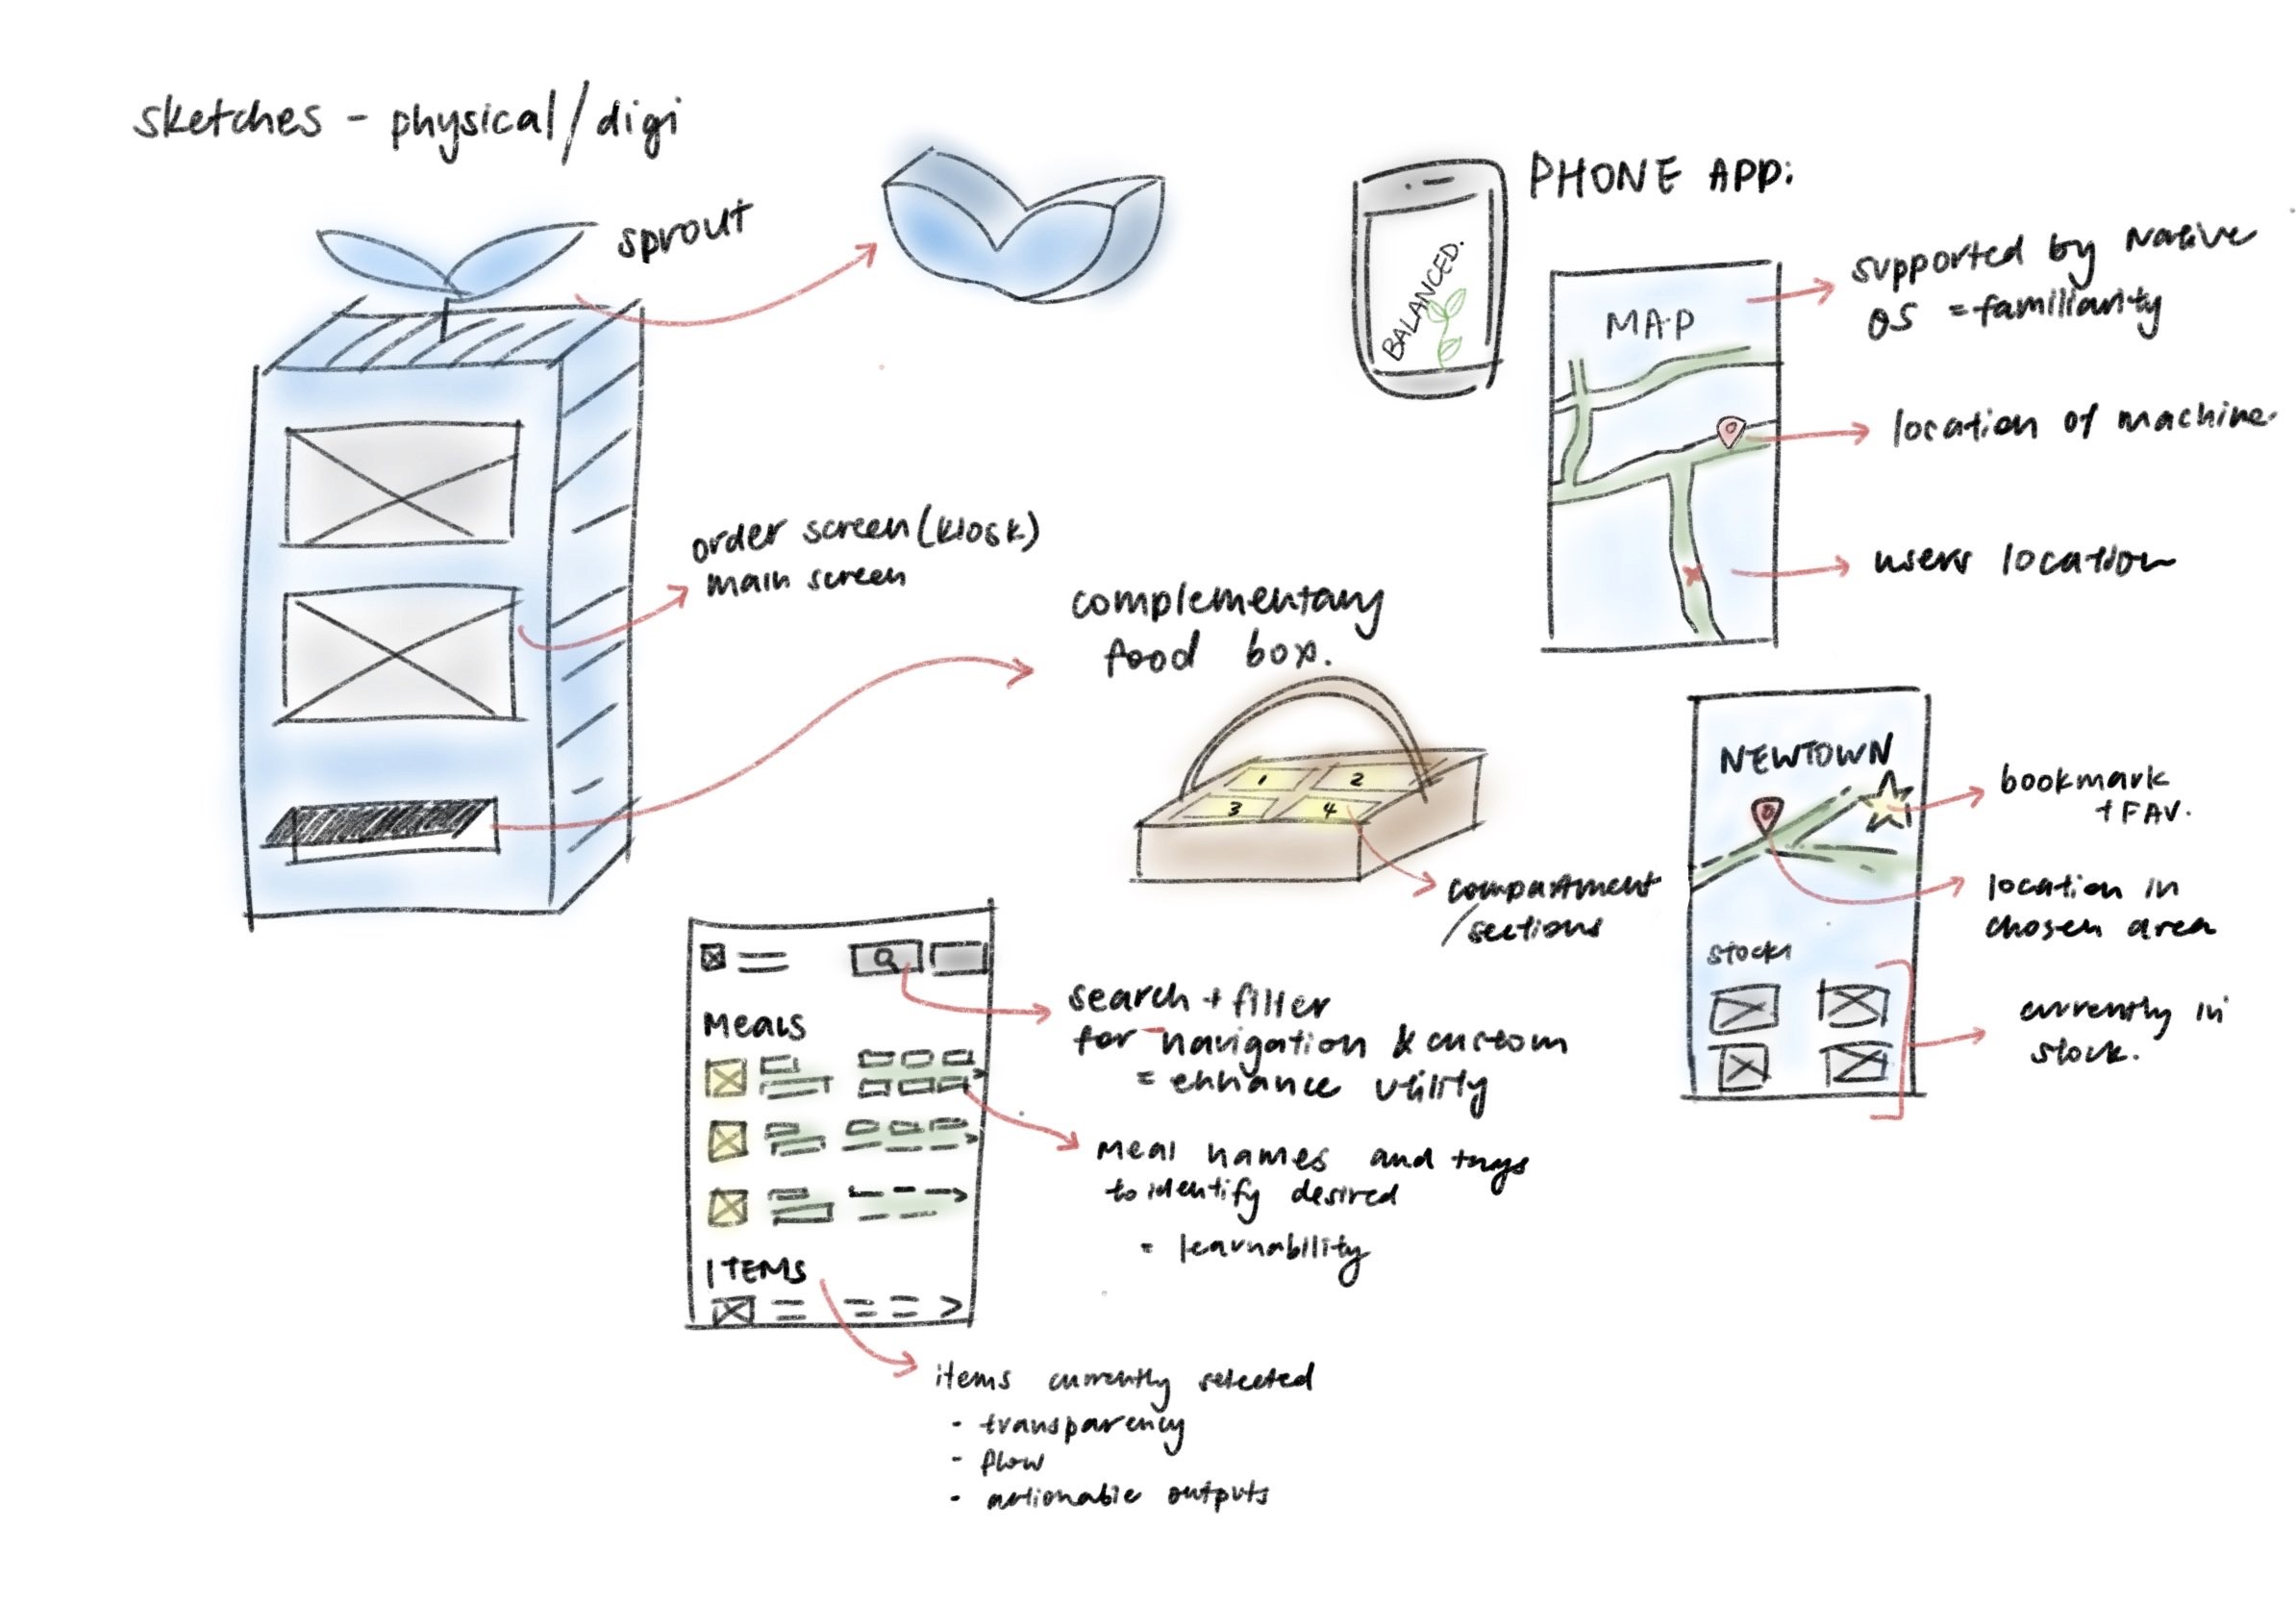 sketches - physical/digi
sprout
order screen (kiosk)
main screen
complementary
food box.
1 2
3 4
compartment
/sections
MEALS
ITEMS
search + filter
for navigation & custom
= enhance utility
meal names and tags
to identify desired
= learnability
items currently selected
- transparency
- flow
- actionable outputs
PHONE APP:
BALANCED.
MAP
supported by Native
OS = familiarity
location of machine.
users location
NEWTOWN
bookmark
+ FAV.
location in
chosen area
stock
currently in
stock.